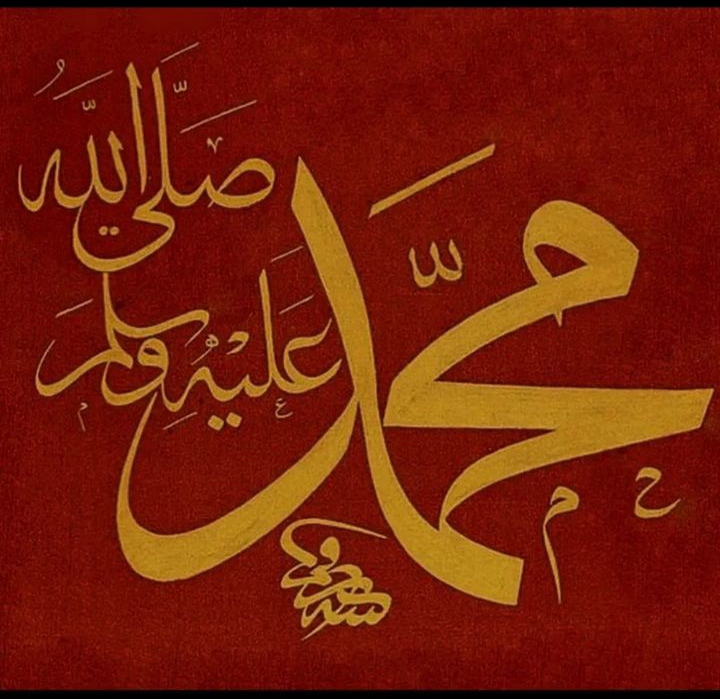 مُحَمَّد
صَلَّى اللَّهُ
عَلَيْهِ وَسَلَّمَ